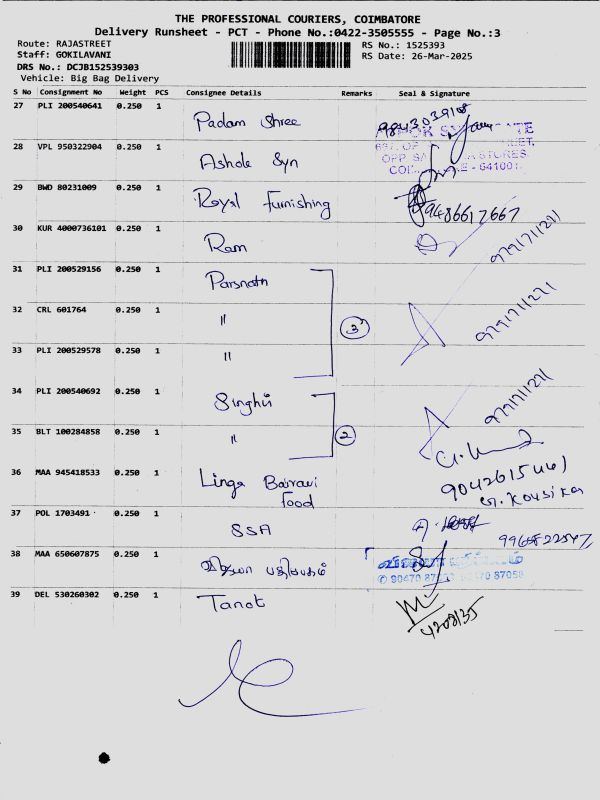 THE PROFESSIONAL COURIERS, COIMBATORE
Delivery Runsheet - PCT - Phone No.:0422-3505555 - Page No.:3
Route: RAJASTREET
Staff: GOKILAVANI
DRS No.: DCJB152539303
Vehicle: Big Bag Delivery
RS No.: 1525393
RS Date: 26-Mar-2025
S No Consignment No Weight PCS Consignee Details Remarks Seal & Signature
27 PLI 200540641 0.250 1 Padam Shree 9843039108
28 VPL 950322904 0.250 1 Ashok Syn
29 BWD 80231009 0.250 1 Royal Furnishing 9486617667
30 KUR 4000736101 0.250 1 Ram 9791711271
31 PLI 200529156 0.250 1 Parsnath
32 CRL 601764 0.250 1 " 3 9791711271
33 PLI 200529578 0.250 1 "
34 PLI 200540692 0.250 1 Singhvi 9791711271
35 BLT 100284858 0.250 1 " 2
36 MAA 945418533 0.250 1 Linga Bairavi Food
37 POL 1703491 0.250 1 SSA
38 MAA 650607875 0.250 1 விஜயா பதிப்பகம் 90470 87058
39 DEL 530260302 0.250 1 Tanot